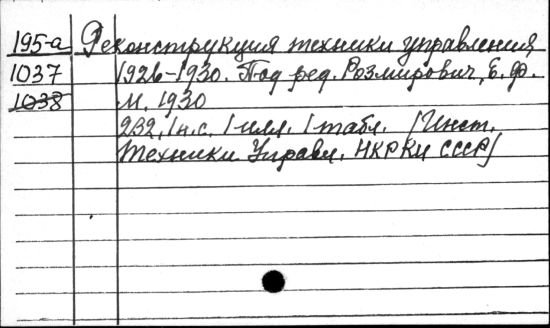 195-а Реконструкция техники управления,
1037 1926-1930. Под ред. Розмирович, Е. Ф.
1038 М. 1930
232, 1 н.с. 1 илл. 1 табл. (Инст.
Техники Управл. НКРКИ СССР)